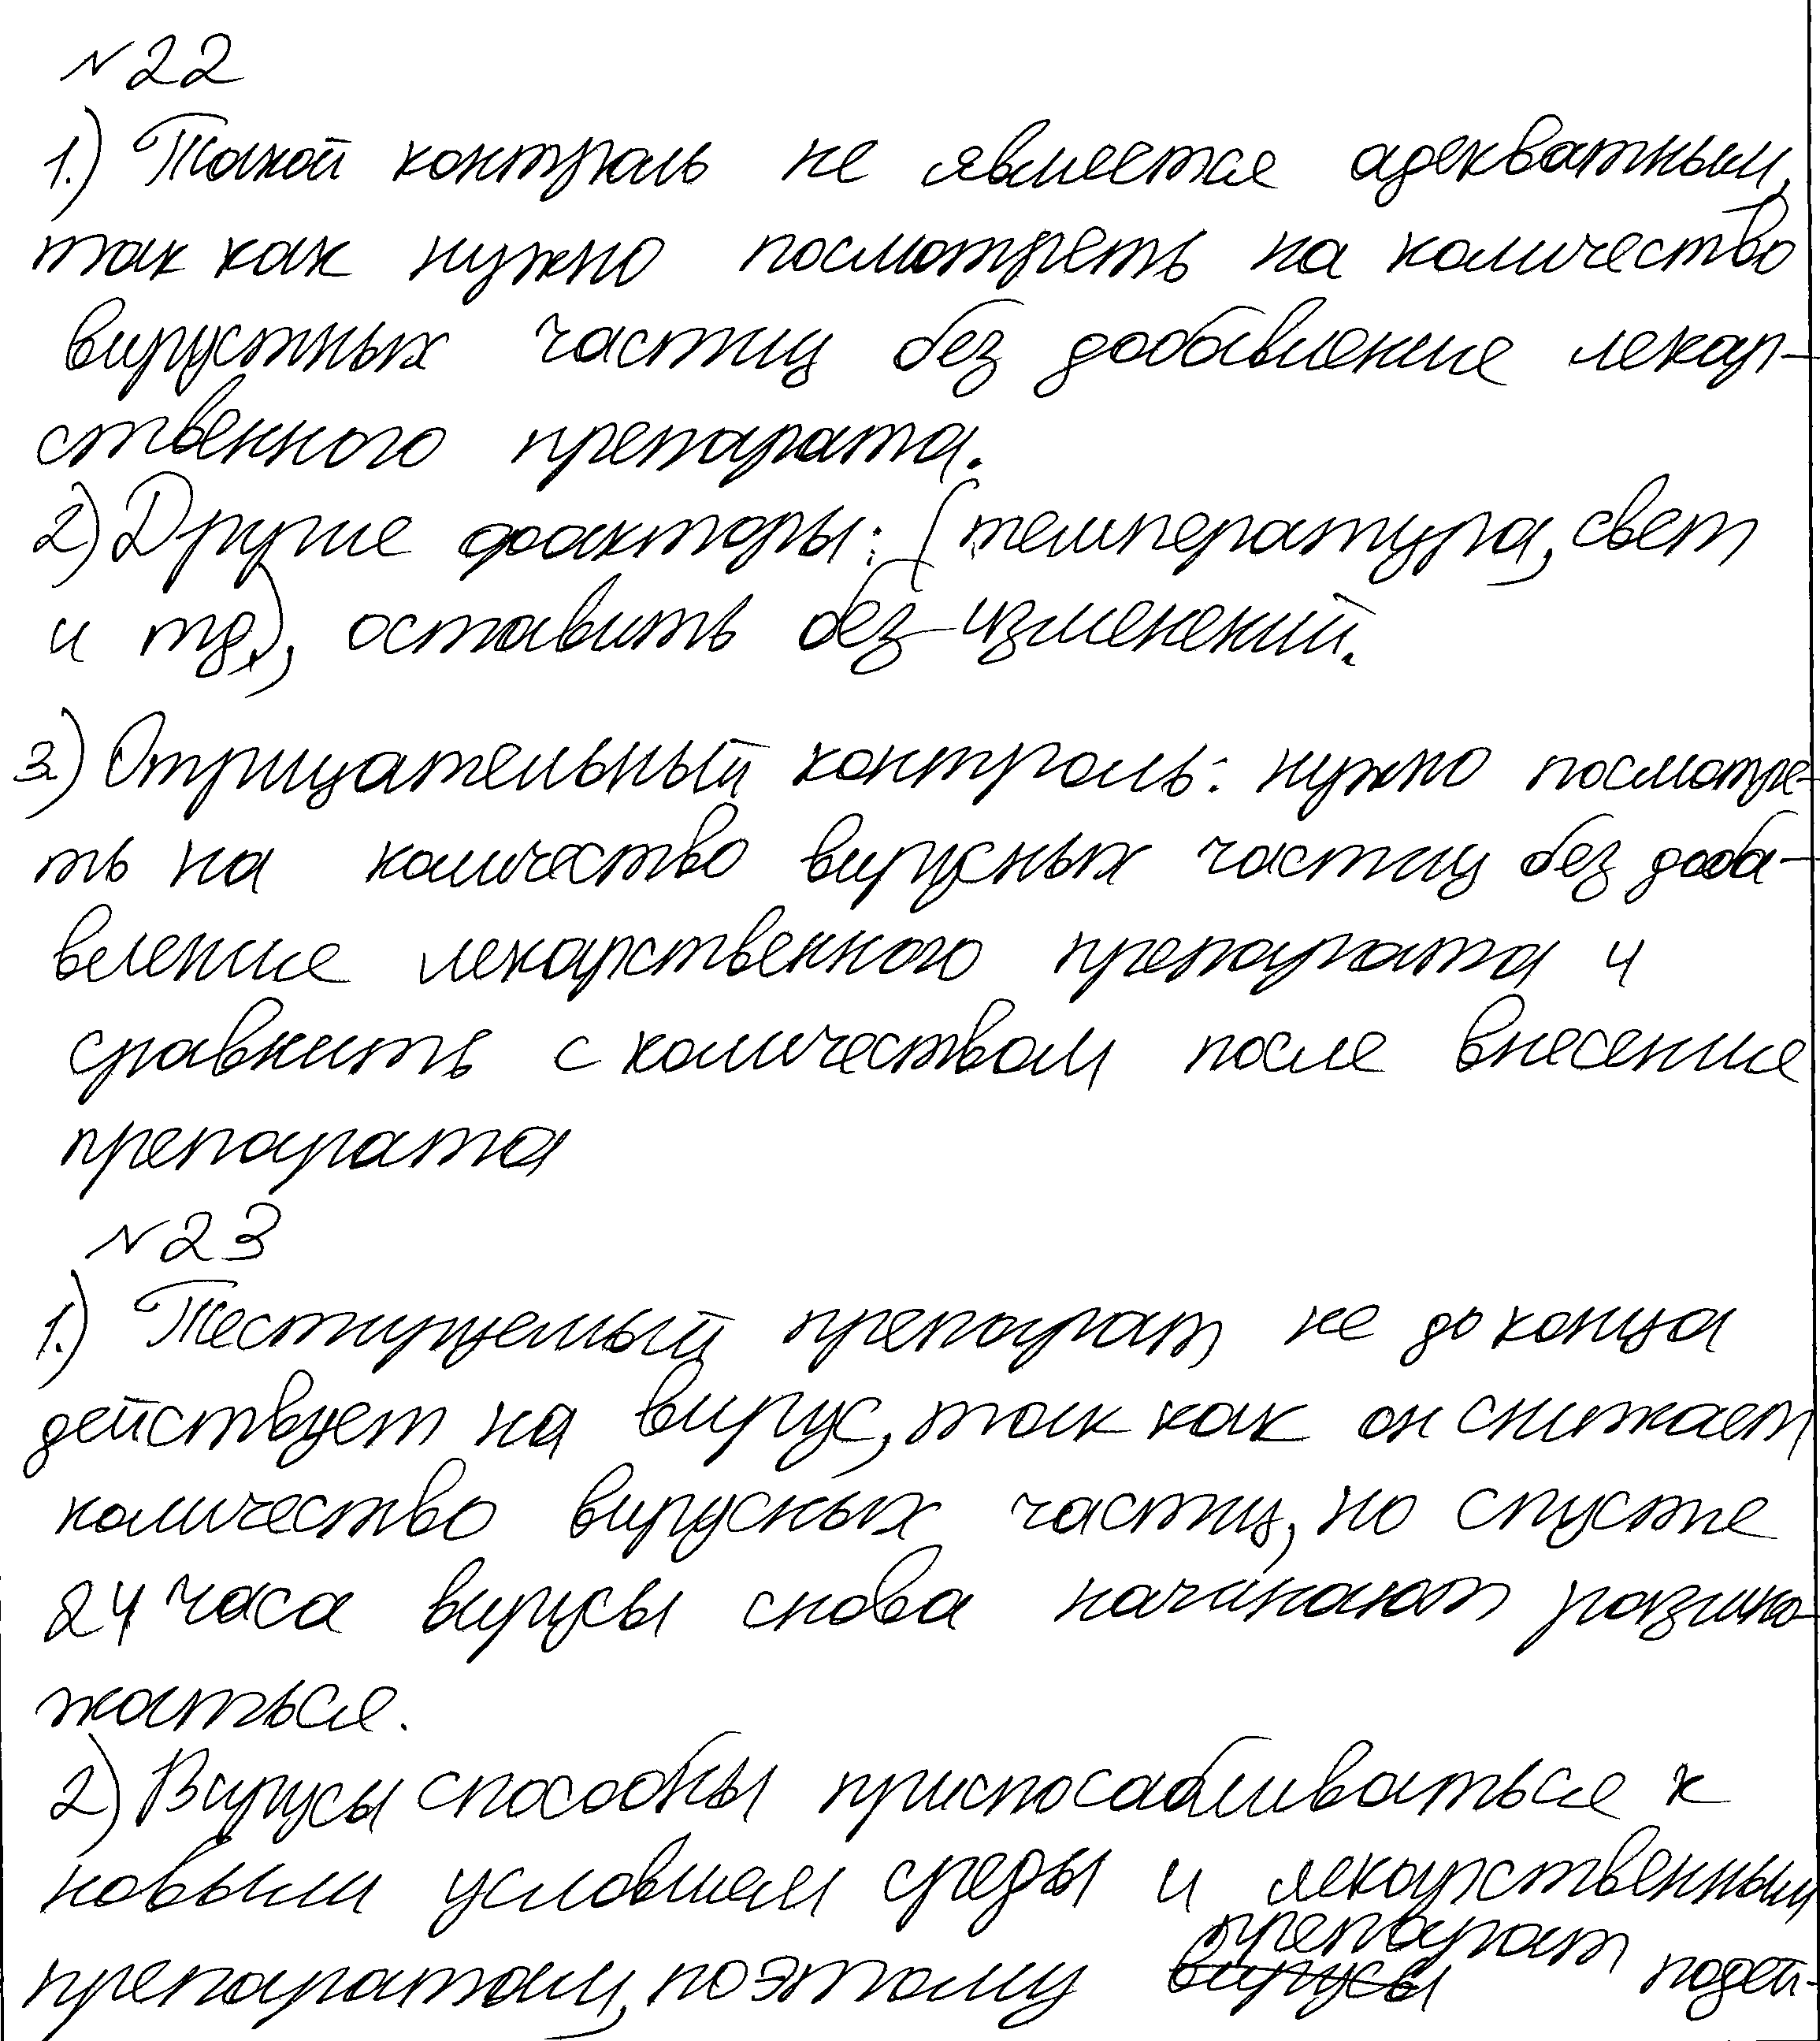 №22
1.) Такой контроль не является адекватным,
так как нужно посмотреть на количество
вирустных частиц без добавление лекар-
ственного препарата.
2) Другие факторы: (температура, свет
и тд.), оставить без изменений.
3.) Отрицательный контроль: нужно посмотре-
ть на количество вирусных частиц без доба-
вление лекарственного препарата и
сравнить с количеством после внесение
препарата
№23
1.) Тестируемый препарат не до конца
действует на вирус, так как он снижает
количество вирусных частиц, но спустя
24 часа вирусы снова начинают размно-
жаться.
2) Вирусы способны приспосабливаться к
новым условиям среды и лекарственным
препаратам, поэтому вирусы препарат подей-